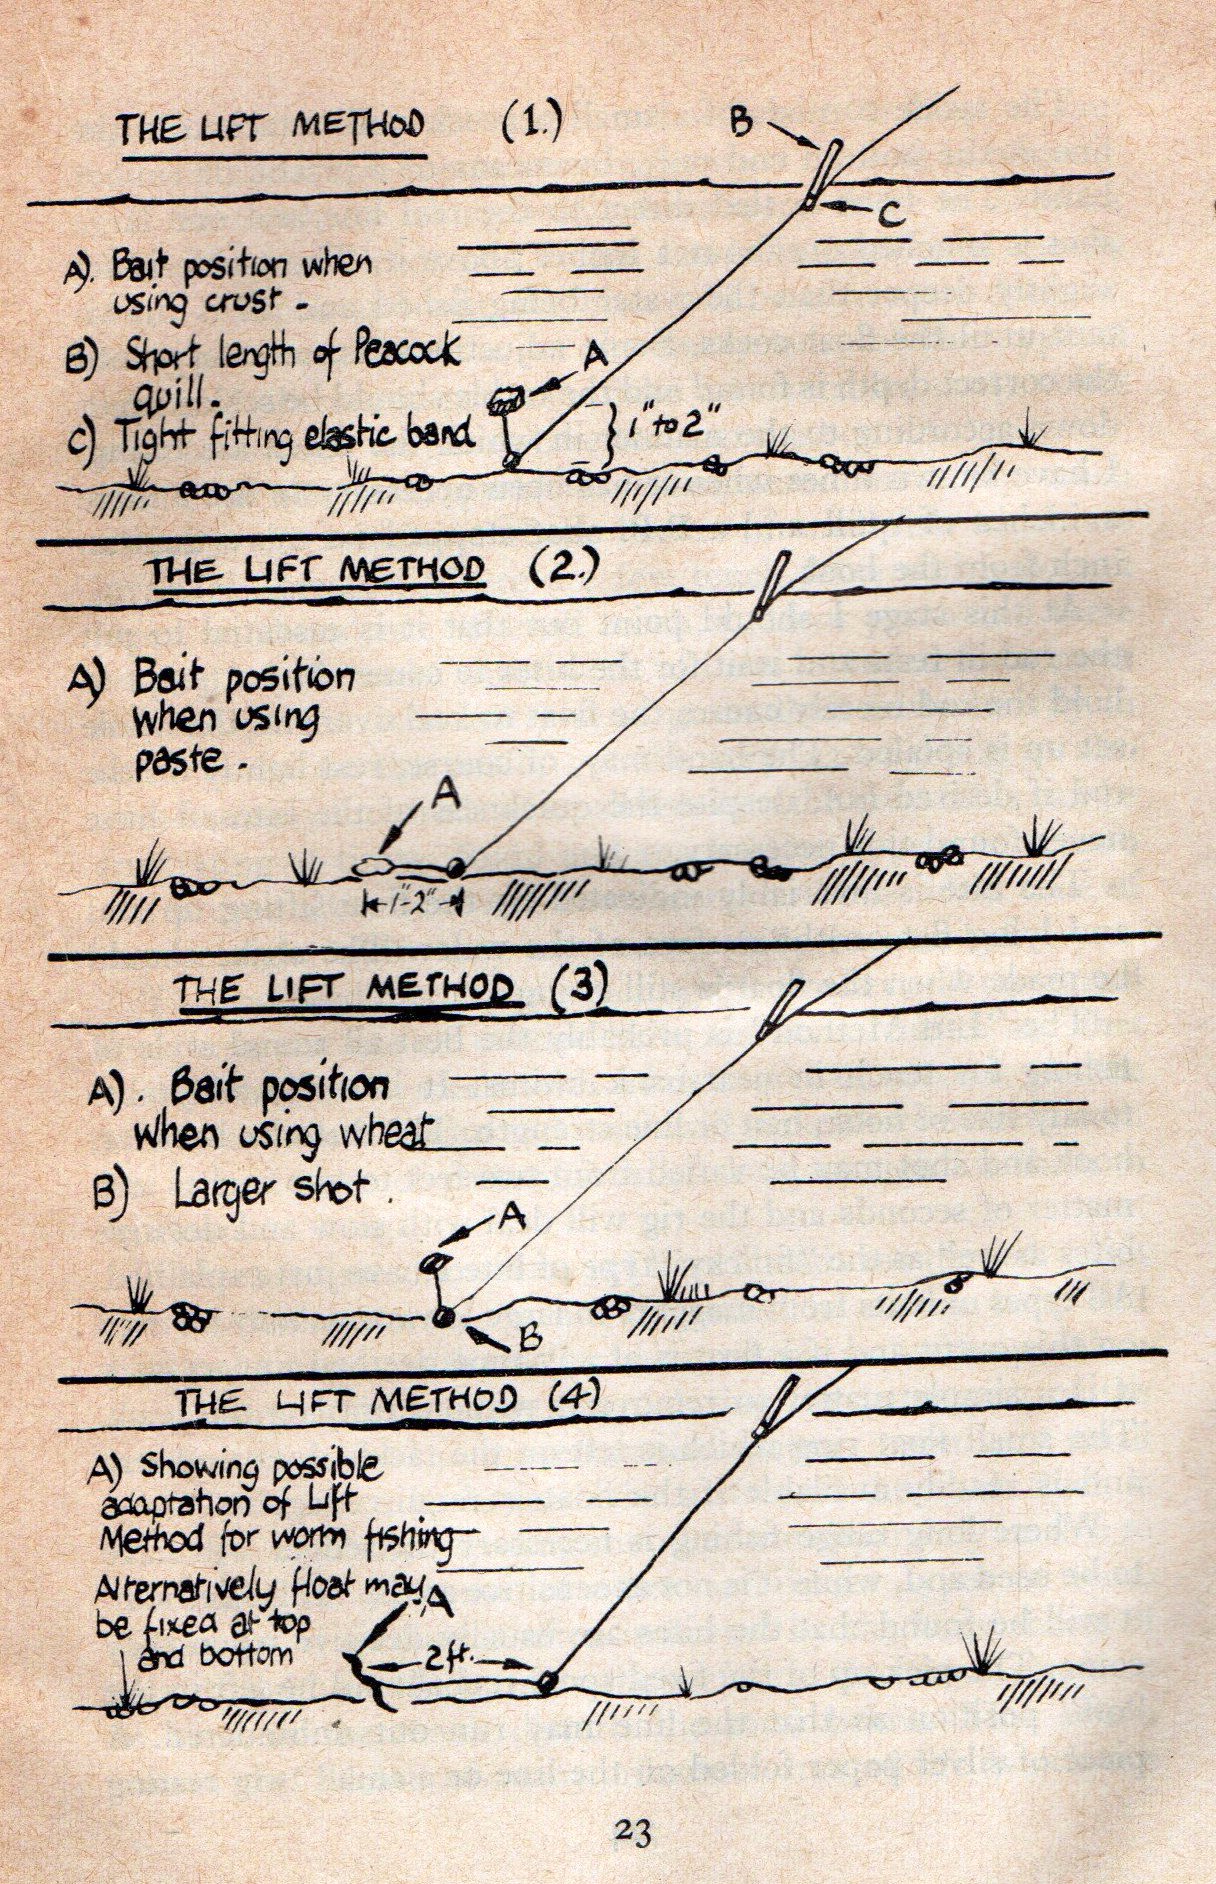 THE LIFT METHOD (1.)
B
C
A). Bait position when
using crust -
B) Short length of Peacock
quill.
A
C) Tight fitting elastic band
1" to 2"
THE LIFT METHOD (2.)
A) Bait position
when using
paste.
A
1"-2"
THE LIFT METHOD (3)
A). Bait position
when using wheat
B) Larger shot.
A
B
THE LIFT METHOD (4)
A) Showing possible
adaptation of Lift
Method for worm fishing
Alternatively float may
be fixed at top
and bottom
A
2 ft.
23